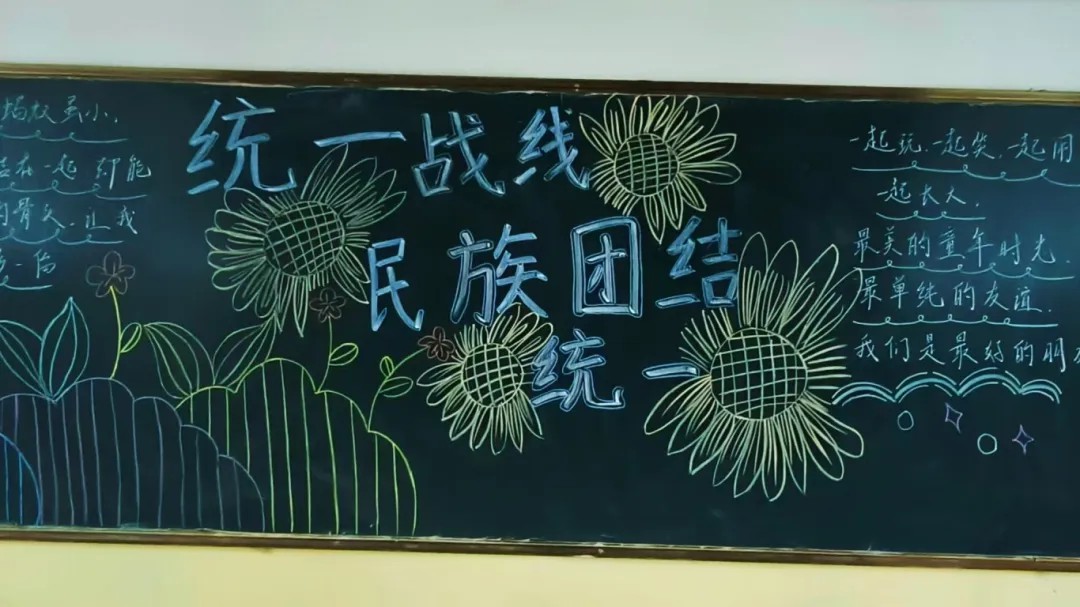 蚂蚁虽小,
在一起 却能
的骨头.让我
一向
统一战线
民族团结
统一
一起玩.一起笑.一起用
一起长大.
最美的童年时光.
最单纯的友谊.
我们是最好的朋友